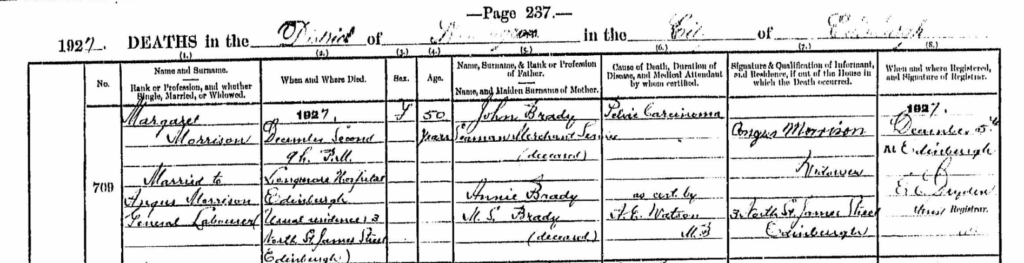 —Page 237.—
1927. DEATHS in the District of in the City of Edinburgh
(1.) (2.) (3.) (4.) (5.) (6.) (7.) (8.)
No.
Name and Surname.
Rank or Profession, and whether Single, Married, or Widowed.
When and Where Died.
Sex.
Age.
Name, Surname, & Rank or Profession of Father.
Name, and Maiden Surname of Mother.
Cause of Death, Duration of Disease, and Medical Attendant by whom certified.
Signature & Qualification of Informant, and Residence, if out of the House in which the Death occurred.
When and where Registered, and Signature of Registrar.
709
Margaret
Morrison
Married to
Angus Morrison
General Labourer
1927,
December Second
9h. P.M.
Longmore Hospital
Edinburgh
(Usual residence 3
North St. James Street
Edinburgh)
F
50
Years
John Brady
Seaman Merchant Service
(deceased)
Annie Brady
M.S. Brady
(deceased)
Pelvic Carcinoma
as cert. by
A. E. Watson
M.B.
Angus Morrison
Widower
3 North St. James Street
Edinburgh
1927.
December 5th
At Edinburgh
Registrar.